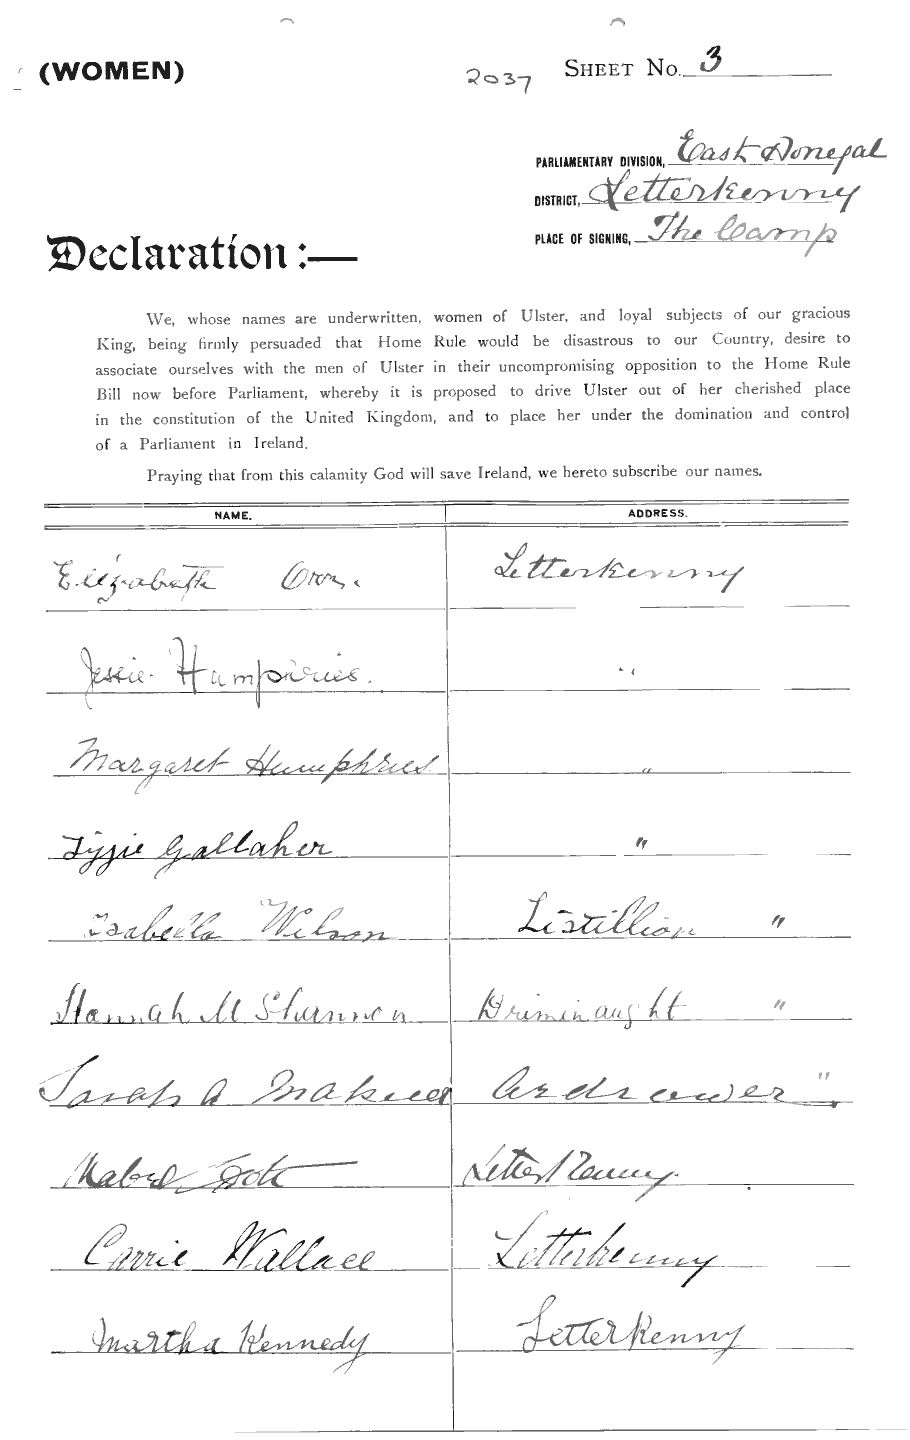 (WOMEN)
2037
SHEET No. 3
PARLIAMENTARY DIVISION, East Donegal
DISTRICT, Letterkenny
PLACE OF SIGNING, The Camp
Declaration :—
We, whose names are underwritten, women of Ulster, and loyal subjects of our gracious
King, being firmly persuaded that Home Rule would be disastrous to our Country, desire to
associate ourselves with the men of Ulster in their uncompromising opposition to the Home Rule
Bill now before Parliament, whereby it is proposed to drive Ulster out of her cherished place
in the constitution of the United Kingdom, and to place her under the domination and control
of a Parliament in Ireland.
Praying that from this calamity God will save Ireland, we hereto subscribe our names.
NAME. ADDRESS.
Elizabeth Orr. Letterkenny
Jessie Humphries. "
Margaret Humphries "
Lizzie Gallaher "
Isabella Wilson Listillion "
Hannah M Shannon Driminaught "
Sarah A "
Mabel Letterkenny.
Carrie Wallace Letterkenny
Martha Kennedy Letterkenny